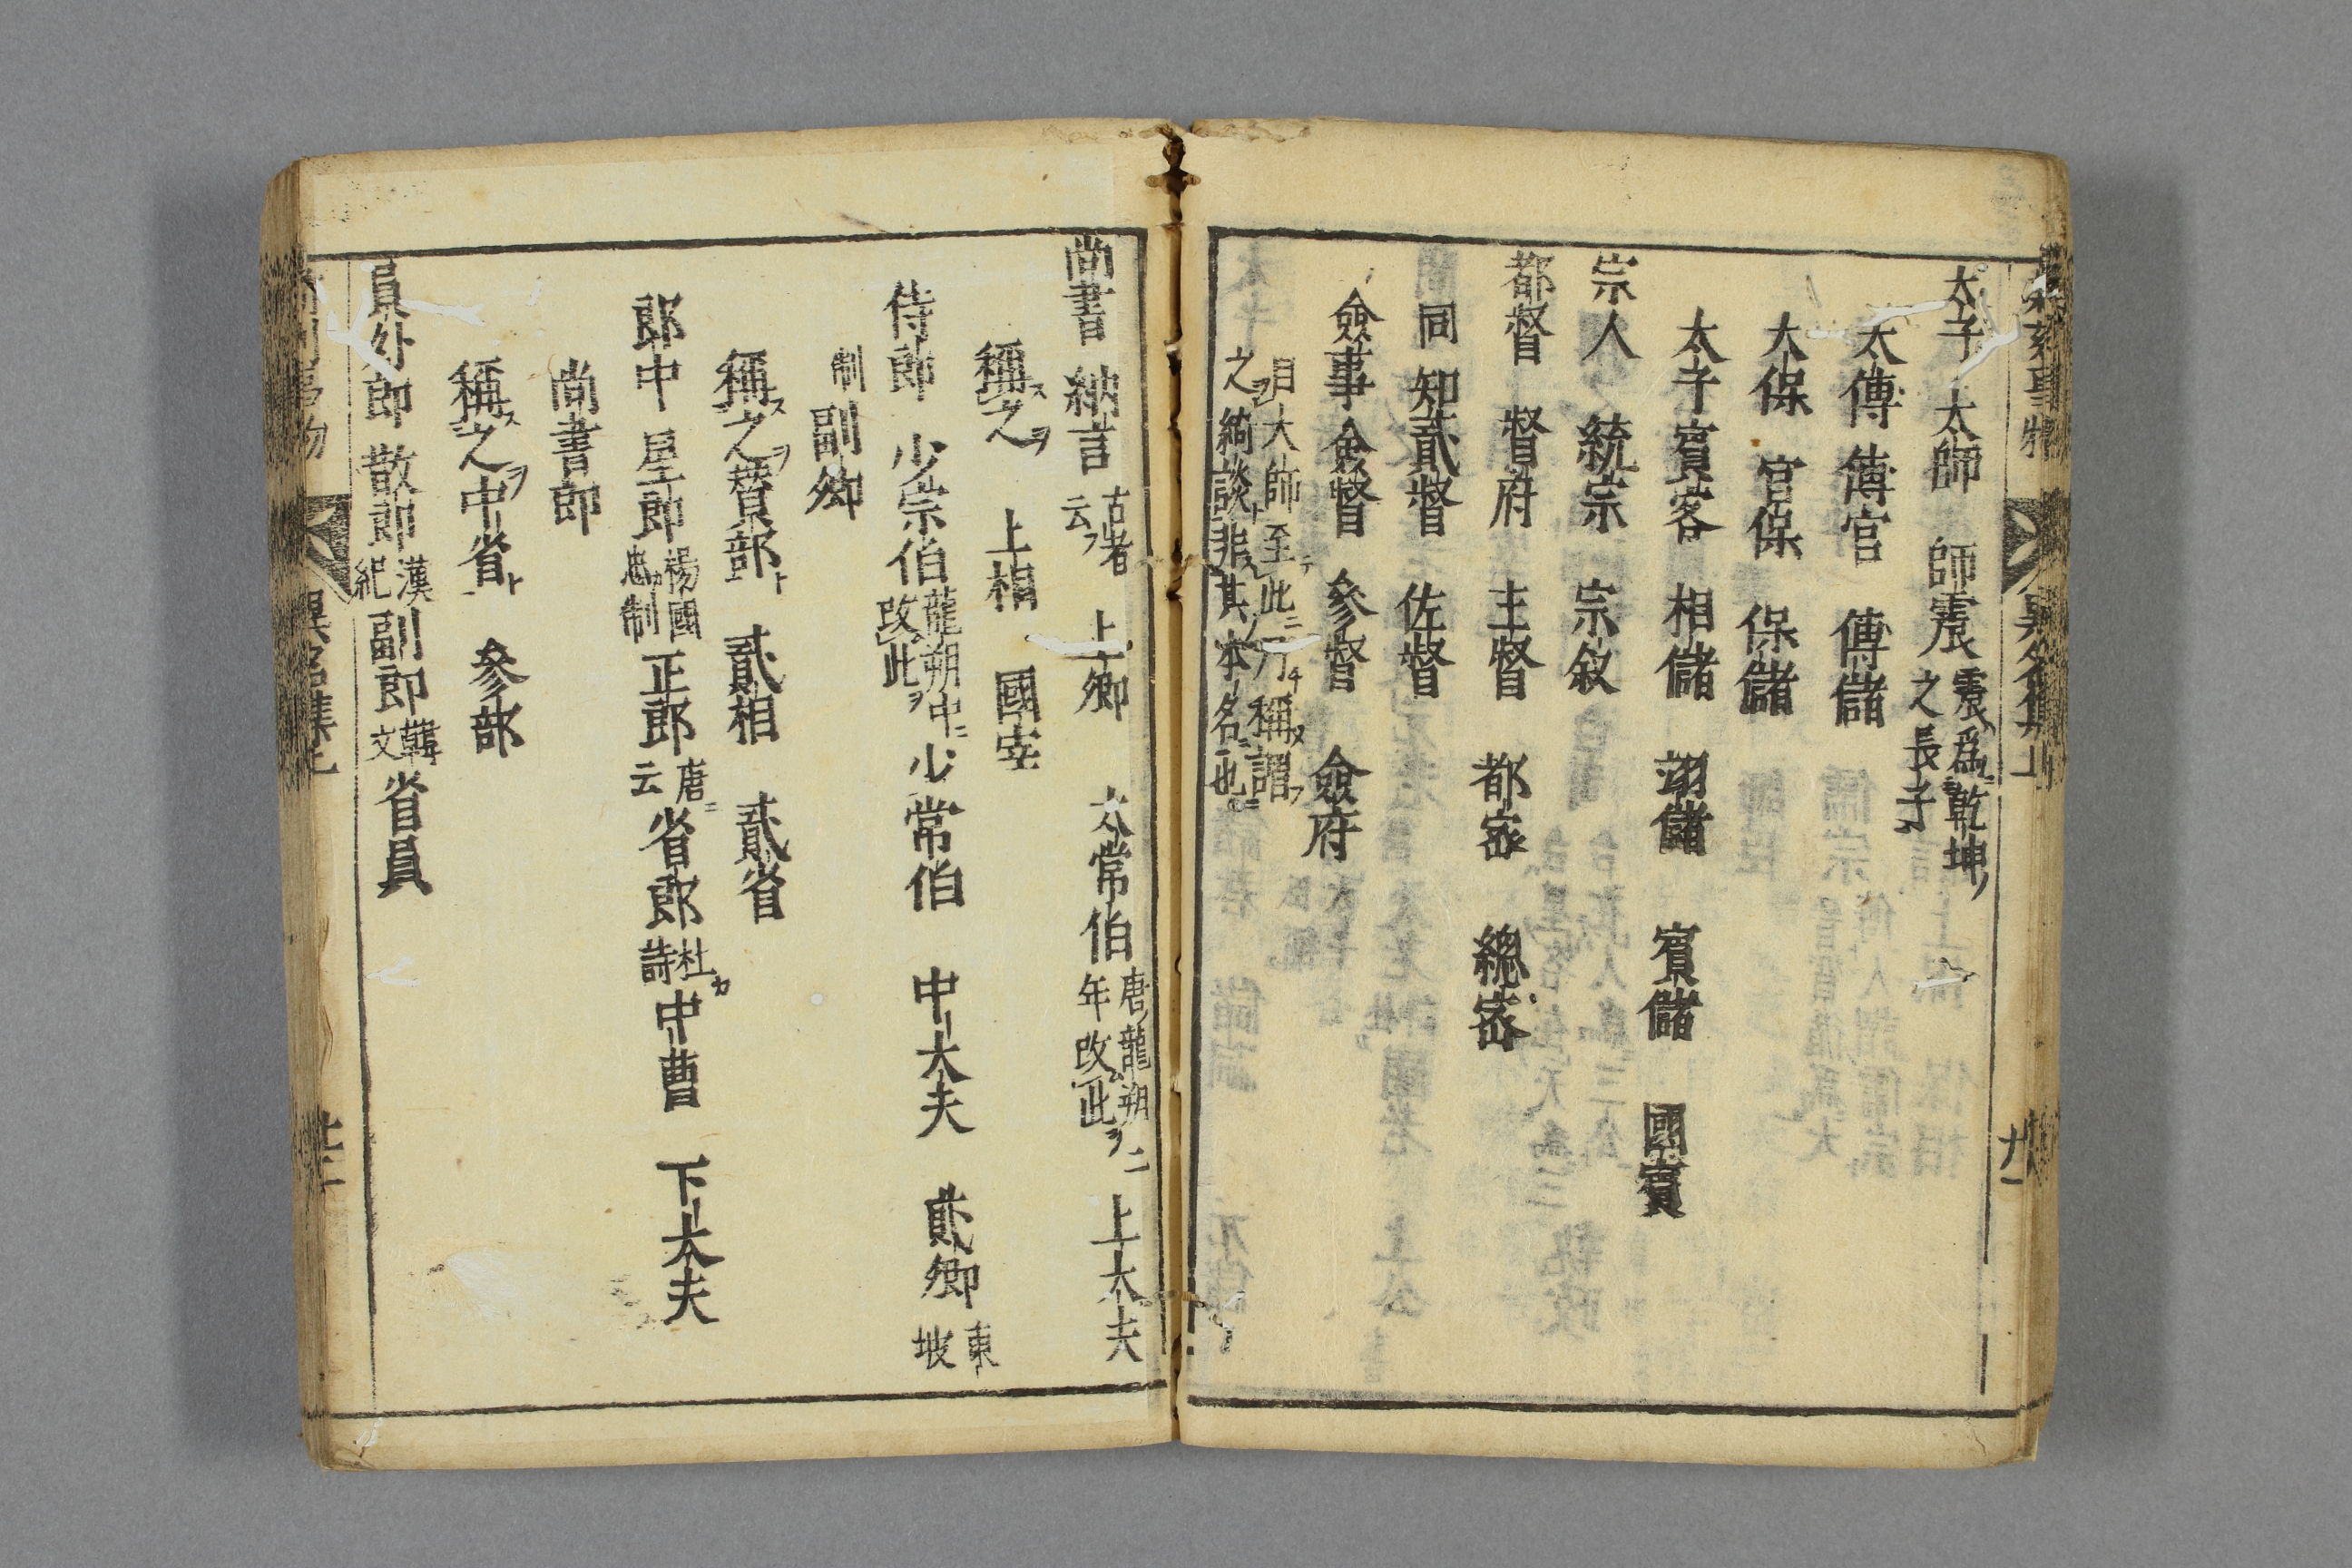 太子太師 師震 震為乾坤之長子
太傅 傅宮 傅儲
太保 宮保 保儲
太子賓客 相儲 翊儲 賓儲 國賓
宗人 統宗 宗叙
都督 督府 主督 都密 總密
同知 貳督 佐督
僉事 僉督 參督 僉府
自大師至此乃稱謂之綺談非其本名也
尚書 納言 古者云 上卿 太常伯 唐龍朔二年改此 上大夫
稱之 上相 國宰
侍郎 少宗伯 龍朔中改此 少常伯 中大夫 貳卿 東坡
制 副卿
稱之 贊部 貳相 貳省
郎中 星郎 楊國忠制 正郎 唐云 省郎 杜詩 中曹 下大夫
尚書郎
稱之 中省 參部
員外郎 散郎 漢紀 副郎 韓文 省員